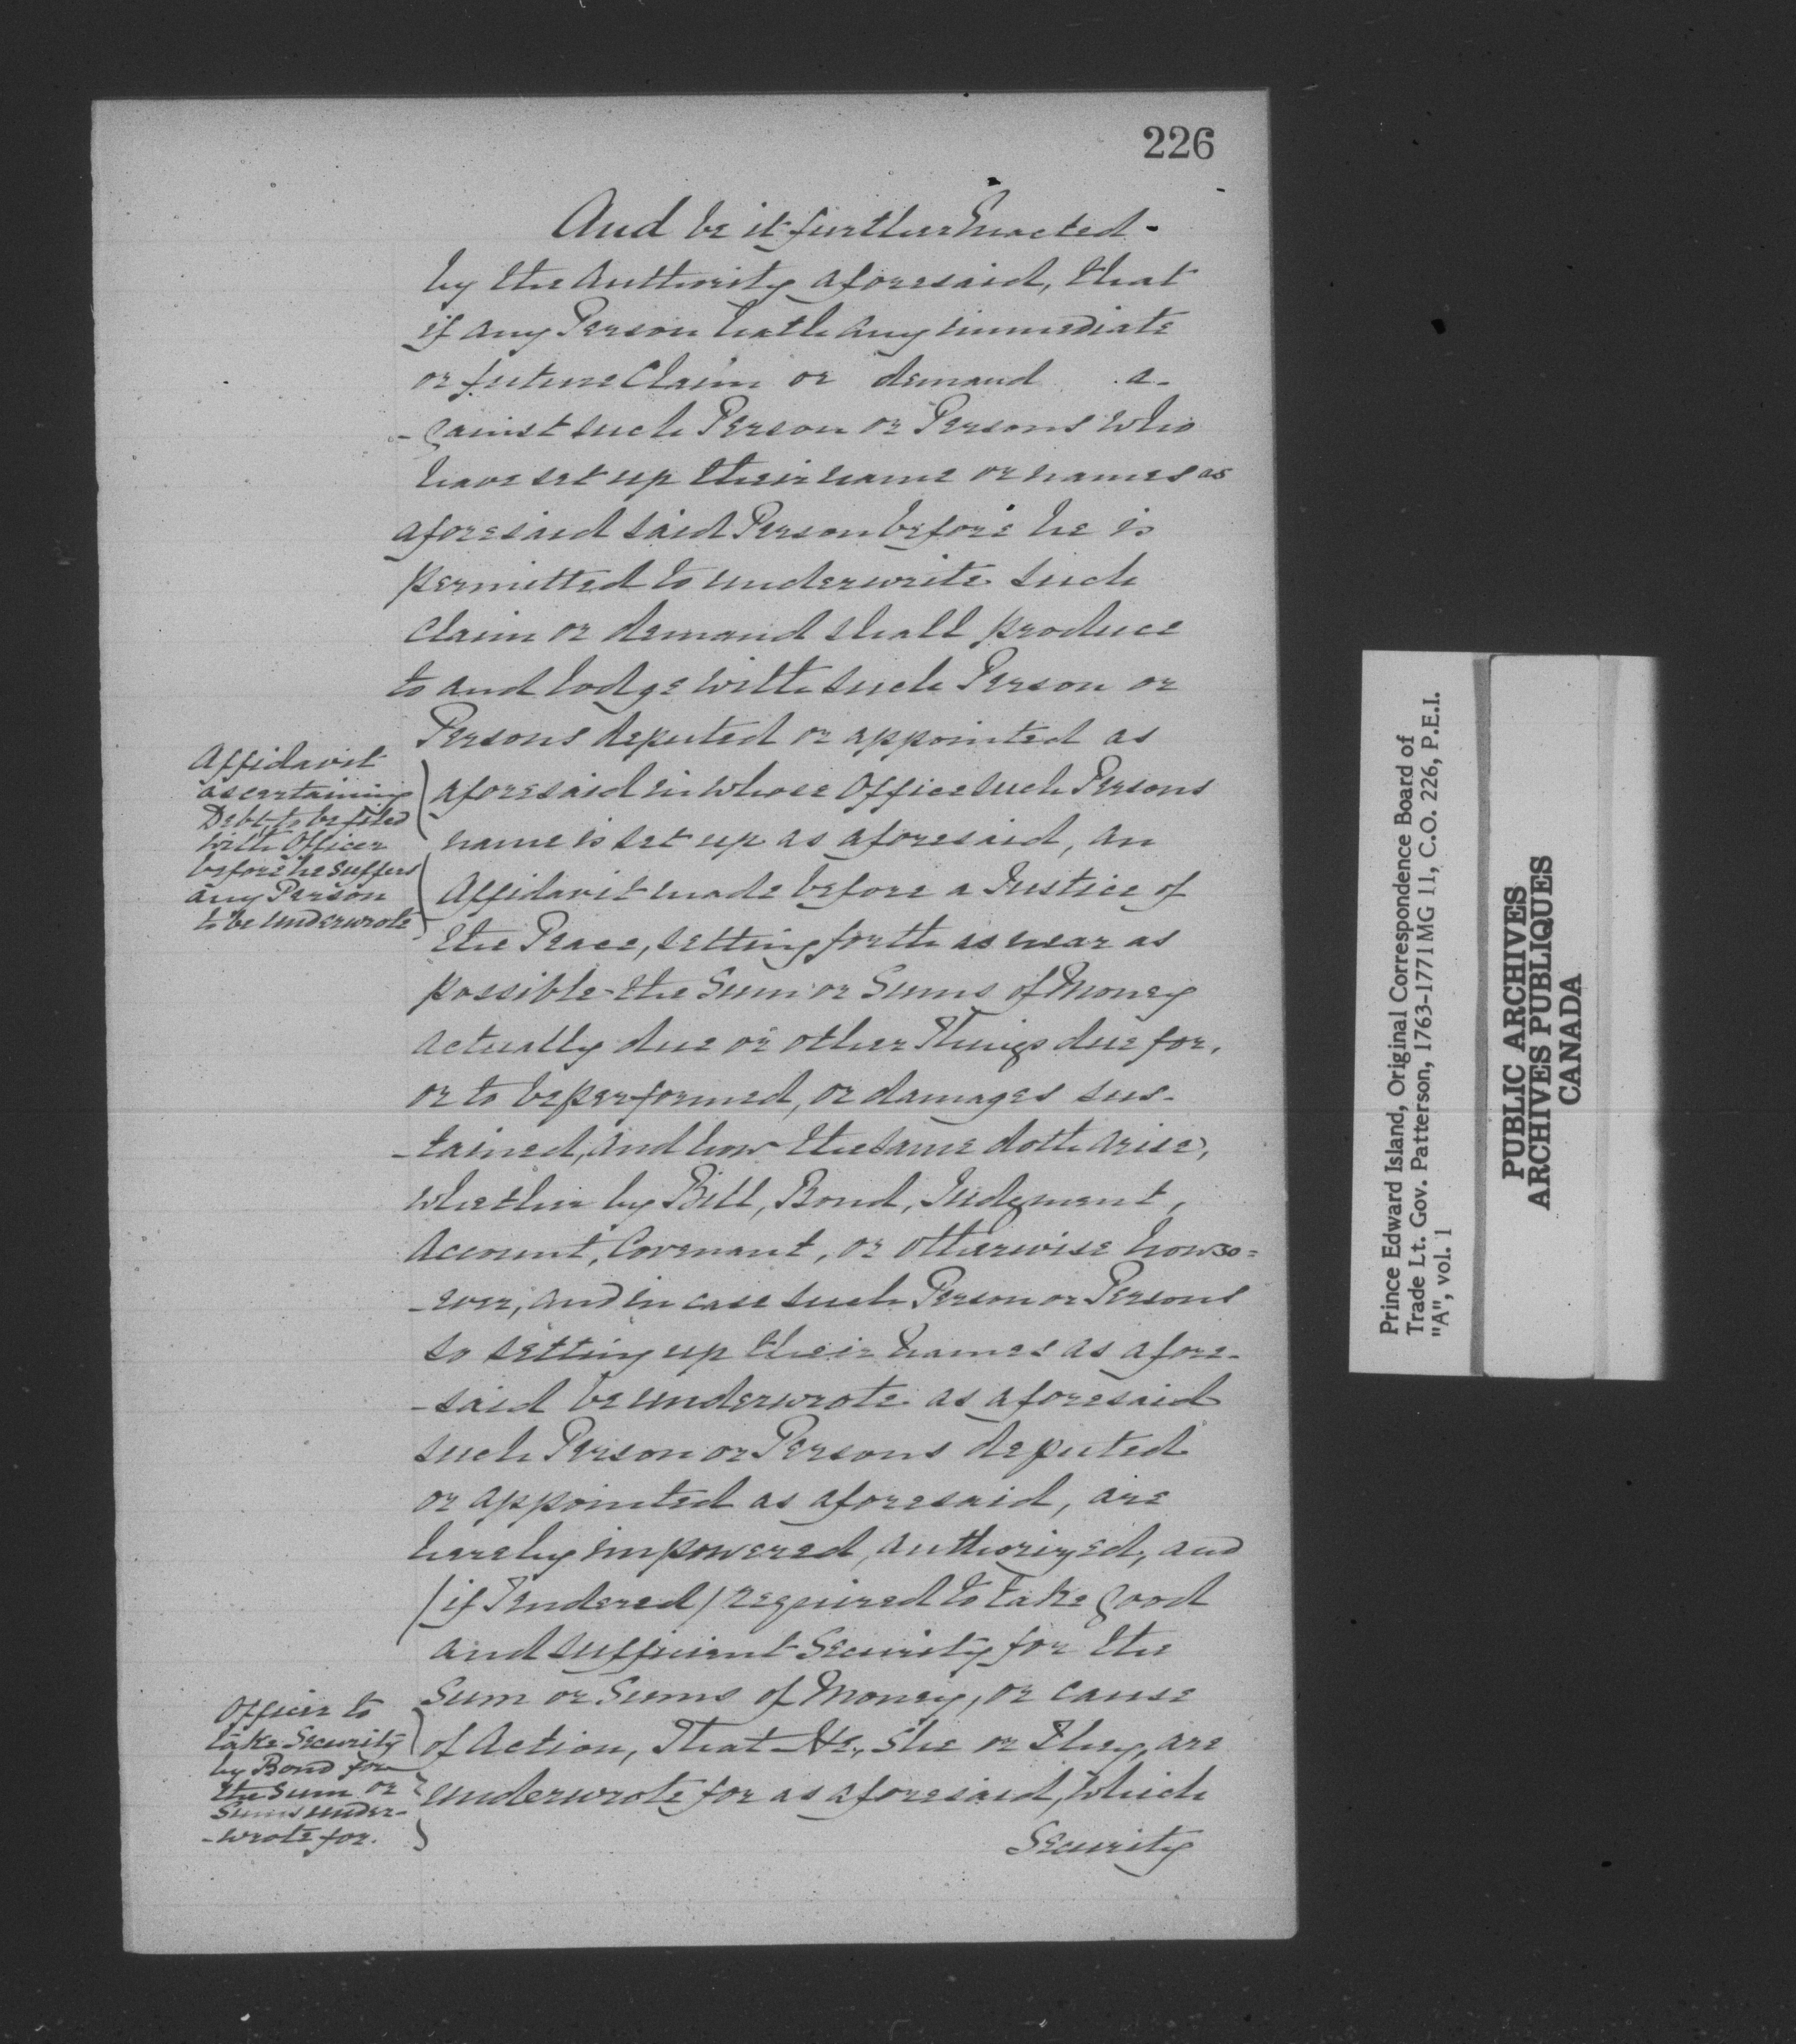 226
And be it further Enacted -
by the Authority aforesaid, that
if any Person hath any immediate
or future Claim or demand a-
-gainst such Person or Persons who
have set up their name or names as
aforesaid said Person before he is
permitted to underwrite such
Claim or demand shall produce
to and lodge with such Person or
Persons deputed or appointed as
aforesaid in whose Office such Persons
name is set up as aforesaid, an
Affidavit made before a Justice of
the Peace, setting forth as near as
possible the Sum or Sums of Money
actually due or other Things due for,
or to be performed, or damages sus-
-tained, and how the same doth arise,
whether by Bill, Bond, Judgment,
Account, Covenant, or otherwise howso=
-ever, and in case such Person or Persons
so setting up their names as afore-
-said be underwrote as aforesaid
such Person or Persons deputed
or appointed as aforesaid, are
hereby impowered, authorized, and
(if Tendered) required to take good
and sufficient Security for the
Sum or Sums of Money, or cause
of Action, That He, She or They, are
underwrote for as aforesaid, which
Security
Affidavit
ascertaining
Debt to be filed
with Officer
before he suffers
any Person
to be underwrote
Officer to
take Security
by Bond for
the Sum or
Sums under-
-wrote for.
Prince Edward Island, Original Correspondence Board of
Trade Lt. Gov. Patterson, 1763-1771 MG 11, C.O. 226, P.E.I.
"A", vol. 1
PUBLIC ARCHIVES
ARCHIVES PUBLIQUES
CANADA